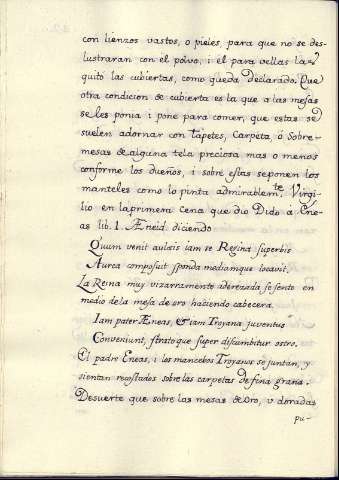 con lienzos vastos, o pieles, para que no se des-
lustraran con el polvo, i el para vellas las
quitó las cubiertas, como queda declarado. Que
otra condicion de cubierta es la que a las mesas
se les ponia i pone para comer, que estas se
suelen adornar con tapetes, Carpeta, ó Sobre-
mesas de alguna tela preciosa mas o menos
conforme los dueños, i sobre estas se ponen los
manteles como lo pinta admirablemte. Virgi-
lio en la primera Cena que dio Dido á Ene-
as lib. 1. Æneid. diciendo
Quum venit aulæis iam se Regina superbis
Aurea composuit sponda mediamque locavit.
La Reina muy vizarramente aderezada se sento en
medio de la mesa de oro haciendo cabecera.
Iam pater Æneas, & iam Trojana juventus
Conveniunt, stratoque super discumbitur ostro.
El padre Eneas, i los mancebos Troyanos se juntan, y
sientan recostados sobre las carpetas de fina grana.
Desuerte que sobre las mesas de oro, v doradas
pu-